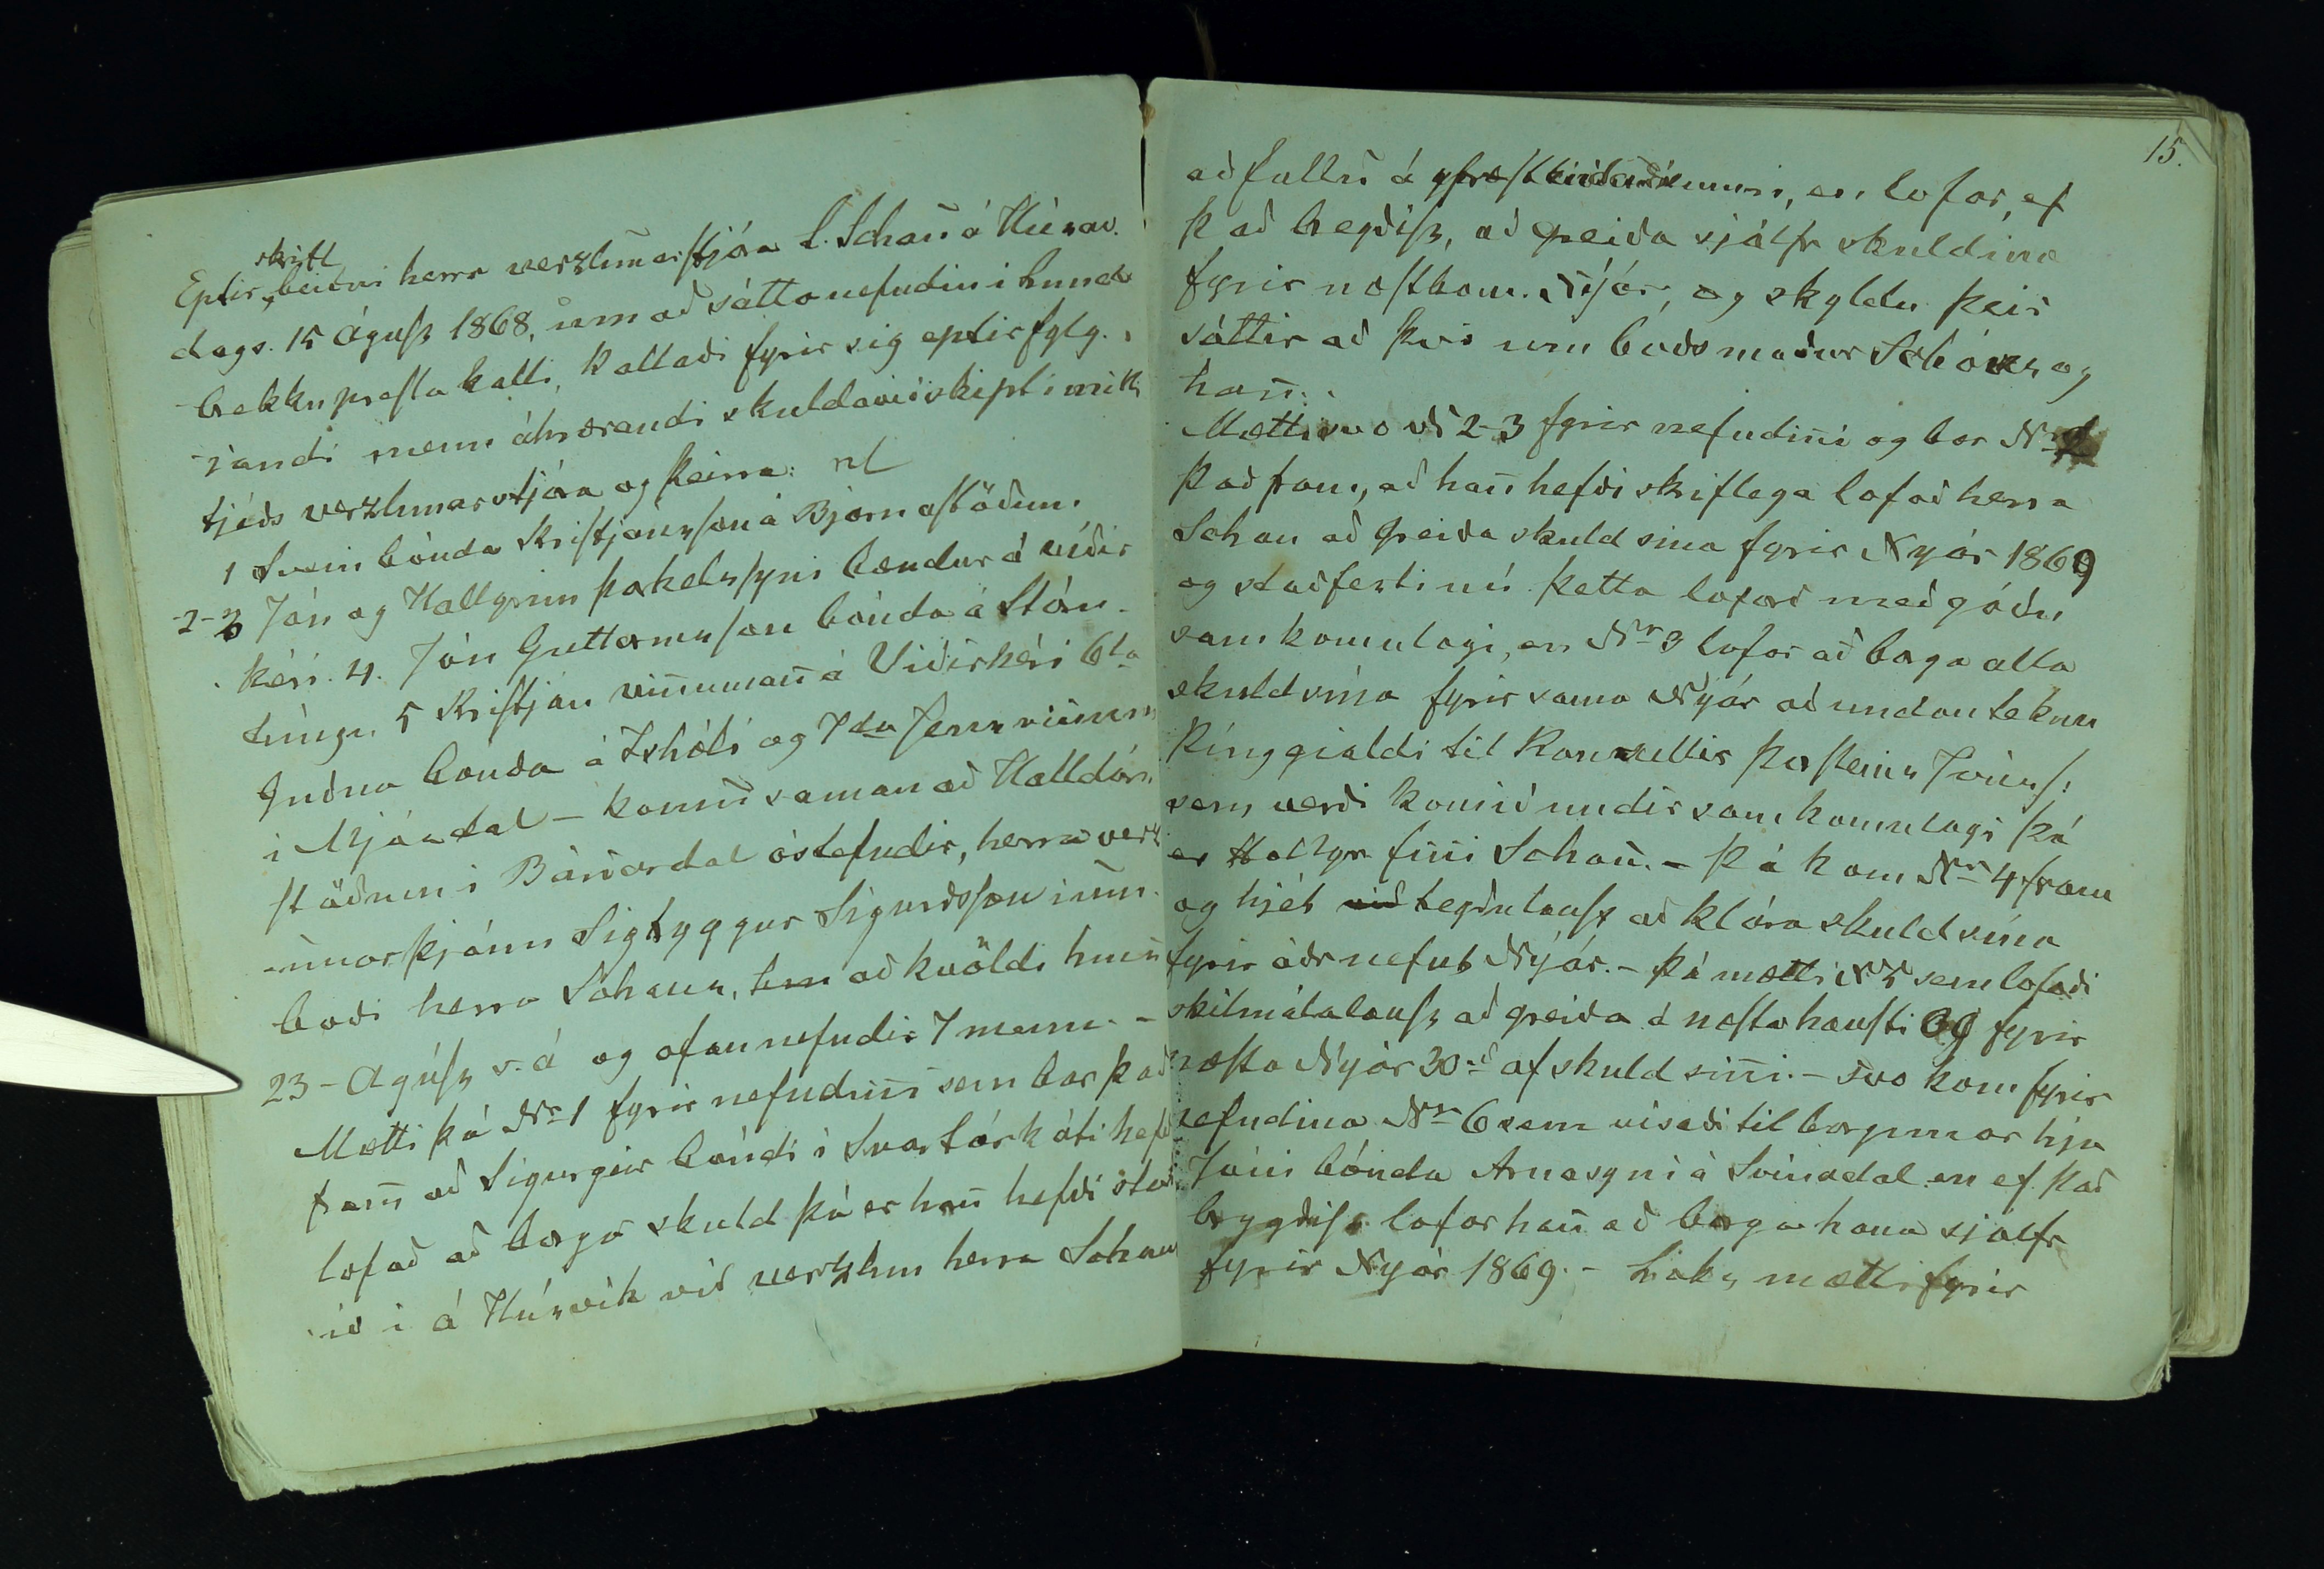 Eptir skrifl beiðni herra verzlunarstjóra L. Schou á Húsav.
dags. 15 Ágúst 1868, um að sáttanefndin i Lund-
brekkuprestakalli, kallaði fyrir sig eptirfylg-
jandi menn áhrærandi skuldaviðskipti milli
tjeðs verzlunarstjóra og þeirra: nl
1 Svein bónda Kristjánsson á Bjarnastöðum.
2-3 Jón og Hallgrim þorkelssyni bændur á víðir
keri. 4. Jón Guttormsson bónda á Stóru-
tungu. 5 Kristján viñumañ á Viðirkeri 6ta
Guðna bónda á Ishóli og 7da Jens viñum
i Mjóadal – komu saman að Halldórs
stöðum i Bárðardal óstefndir, herra verz
unarþjónn Sigtryggur Sigurðsson i um-
boði herra Schous, að kvöldi hins
23 – Agúst s. á og ofannefndir 7 menn. –
Mætti þá Nr 1 fyrir nefndiñi sem bar það
fram að Sigurgeir bóndi i Svartárkoti hefð
lofað að borga skuld þá er hañ hefði stað
ið i á Húsvik við verzlun herra Schou
15.
að fullu á , en lofar, ef
það bregðist, að greiða sjálfr skuldina
fyrir næstkom. Nýár, og skyldu þeir
sáttir að þvi umboðsmaður Schous og
hañ.
Mætti svo við 2-3 fyrir nefndiñi og bar Nr 2
það fram, að hañ hefði skriflega lofað herra
Schou að greiða skuld sina fyrir Nyár 1869
og staðfesti nú þetta loforð með góðu
samkomulagi, en Nr 3 lofar að borga alla
skuld sína fyrir sama Nyár að undanteknu
þinggjaldi til
sem verði komið undir samkomulagi þá
er Hallgr. fiñi Schou. – Þá kom Nr 4 fram
og hjet tregðulaust að klára skuld sína
fyrir áðrnefnt Nýár. – Þá mætti Nr 5 sem lofaði
skilmálalaust að greiða á næsta hausti og fyrir
næsta Nýár 30rd af skuld siñi. – Svo kom fyrir
nefndina Nr 6 sem visaði til borgunar hja
Jóni bónda Arnasyni á Svinadal en ef það
brygðist lofar hañ að borga hana sjalfr
fyrir Nyár 1869. – Loks mætti fyrir